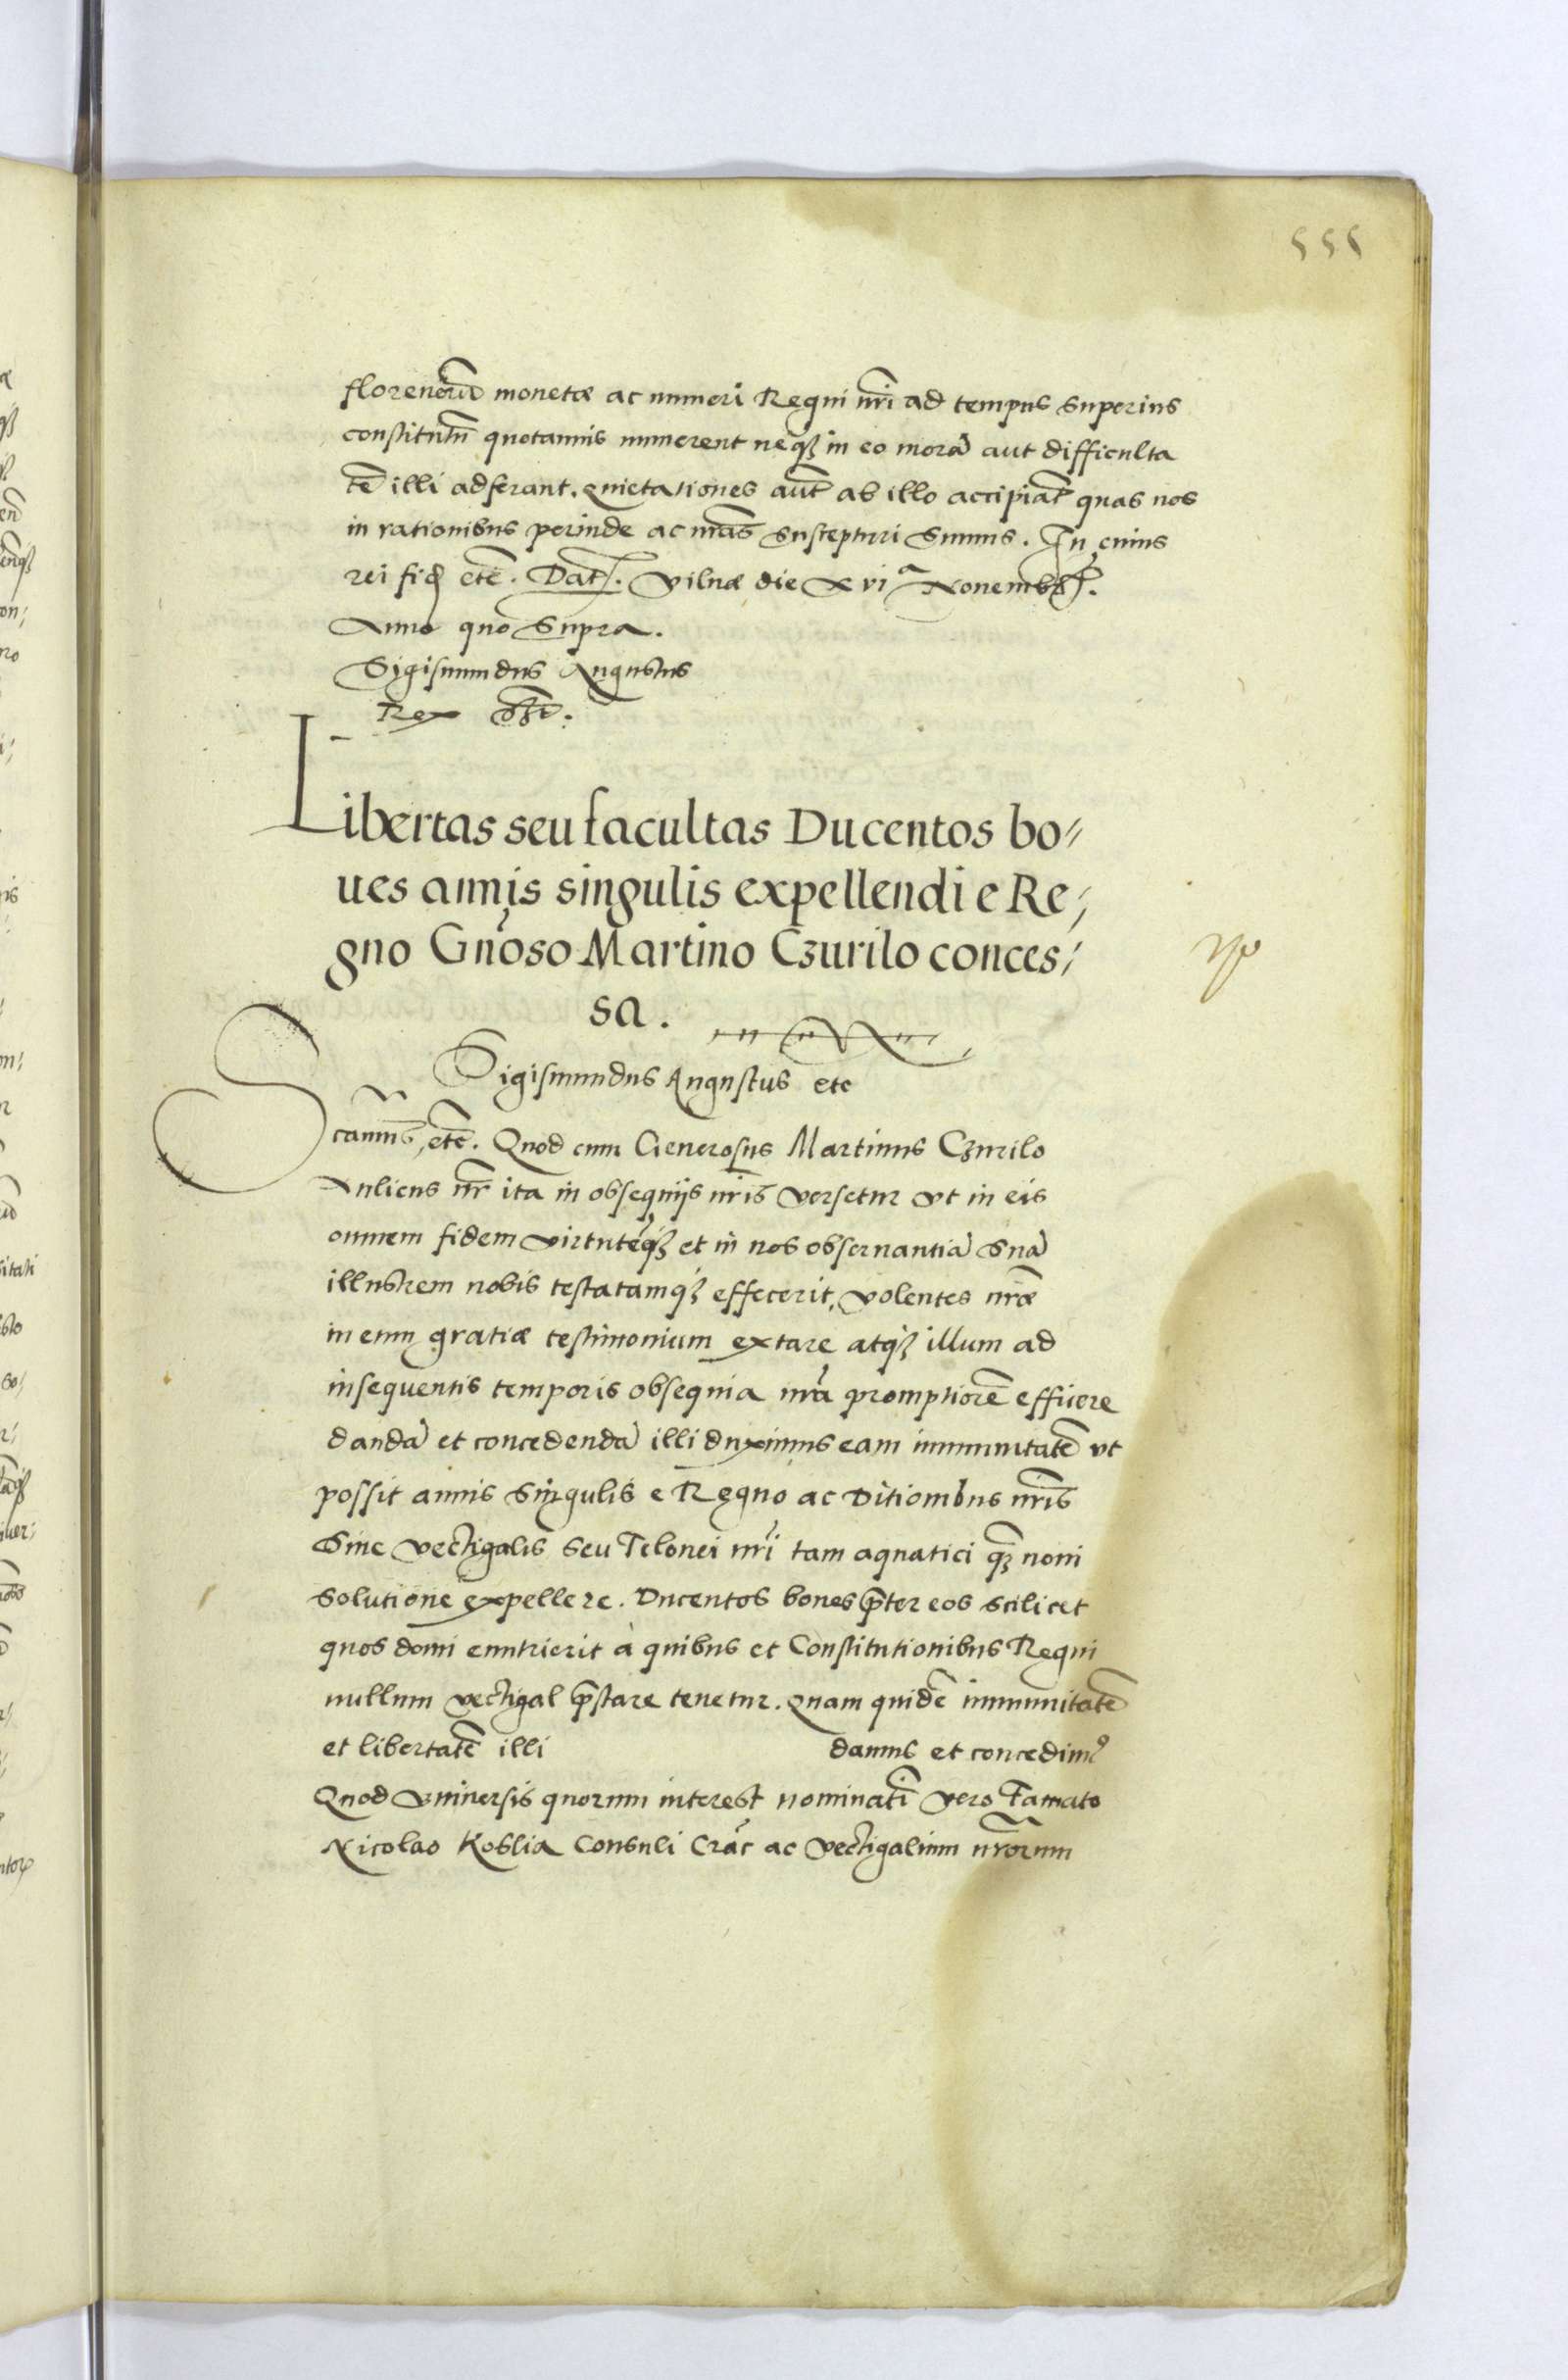 555
florenorū monetæ ac numeri Regni nr̃i ad tempus superius
constitutū quotannis numerent neq3 in eo morā aut difficulta
tē illi adferant. Quietationes aūt ab illo accipiāt quas nos
in rationibus perinde ac nr̃as suscepturi sumus. In cuius
rei fid etc̃. Dat. Vilnæ die xviª Nouembr.
Anno quo supra.
Sigismundus Augustus
Rex sst.
Libertas seu facultas Ducentos bo⸗
ues annis singulis expellendi e Re⸗
gno Gnõso Martino Czurilo conces⸗
sa.
Sigismundus Augustus etc
Scamus, etc̃. Quod cum Generosus Martinus Czurilo
Aulicus nr̃ ita in obsequijs nr̃is versetur vt in eis
omnem fidem virtutēq3 et in nos obseruantiā suā
illustrem nobis testatamq3 effecerit, volentes nr̃æ
in eum gratiæ testimonium extare atq3 illum ad
insequentis temporis obsequia nr̃a promptiorē efficere
dandā et concedendā illi duximus eam immunitatē vt
possit annis singulis e Regno ac Ditionibus nr̃is
Sine vectigalis seu Telonei nr̃i tam aquatici q̃3 noui
solutione expellere. Ducentos boues p̃ter eos scilicet
quos domi enutrierit à quibus et Constitutionibus Regni
nullum vectigal p̃stare tenetur. Quam quidē immunitatē
et libertatē illi damus et concedim9
Quod vniuersis quorum interest nominatĩ vero Famato
Nicolao Koslia Consuli Crac̃ ac vectigalium nr̃orum